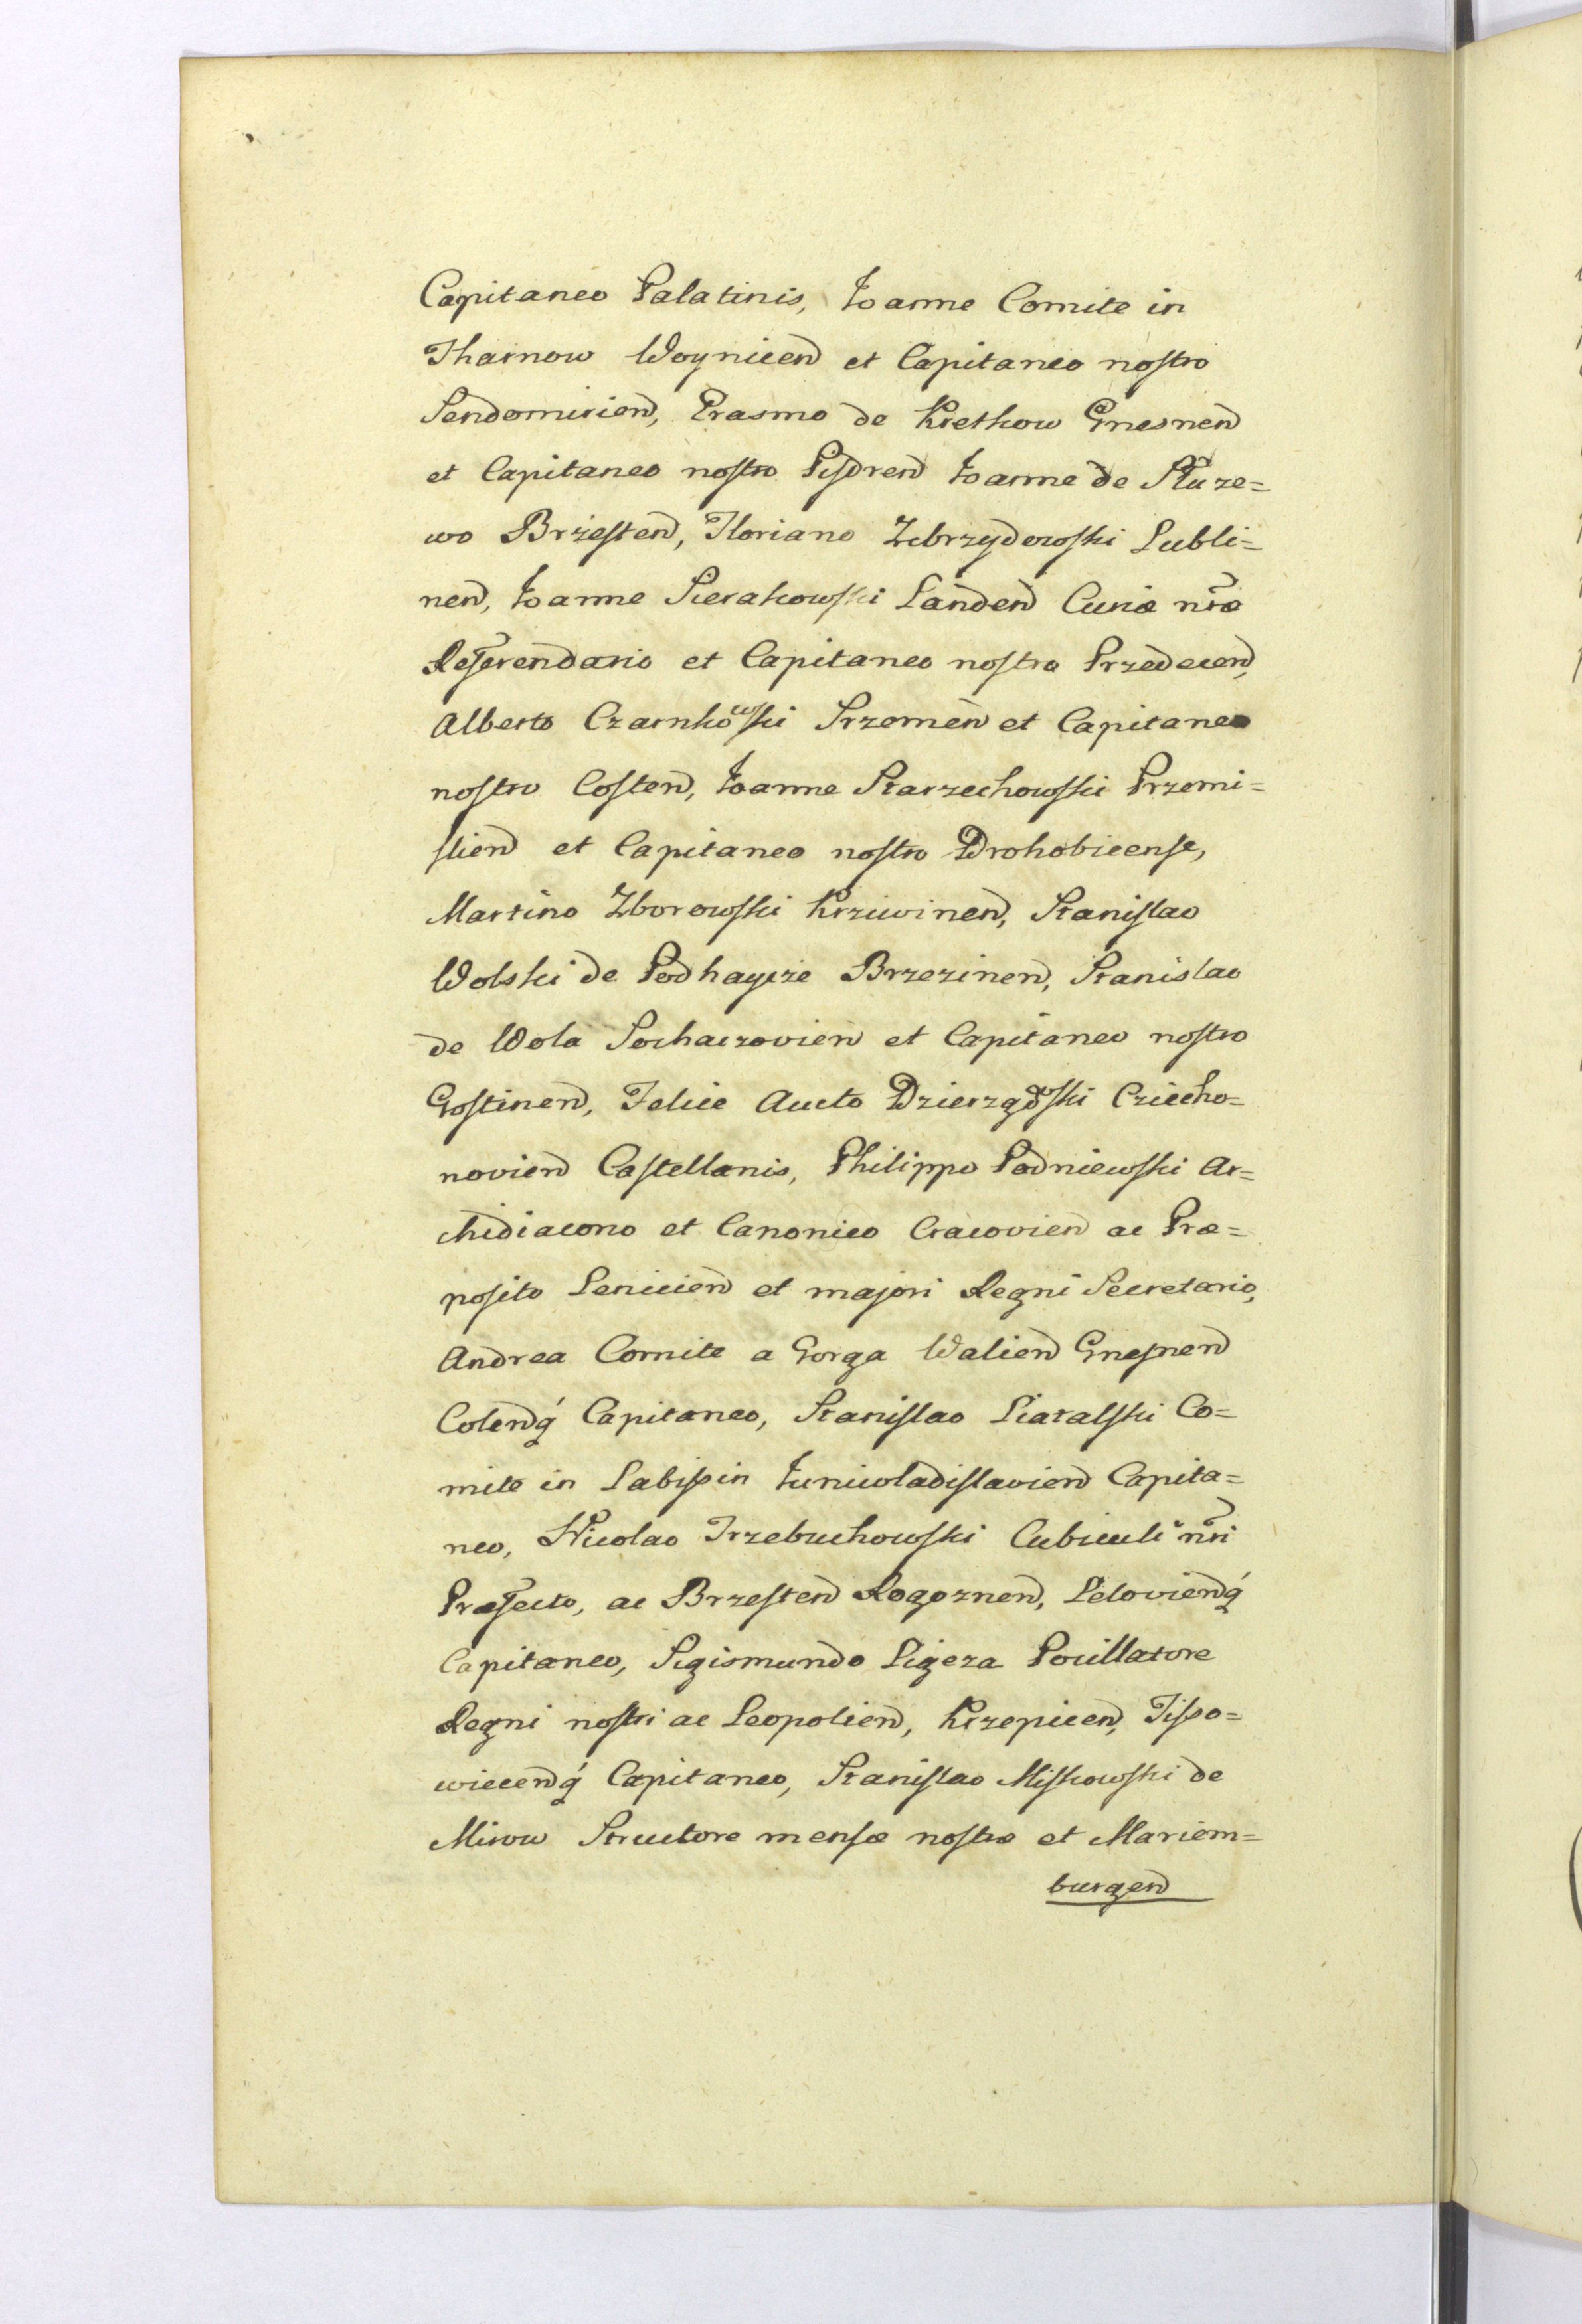 Capitaneo Palatinis, Ioanne Comite in
Tharnow Woynicen̄ et Capitaneo nostro
Sendomirien̄, Erasmo de Krethow Gnesnen̄
et Capitaneo nostro Pisdren̄ Ioanne de Słuze=
wo Brzesten̄, Floriano Zebrzydowski Lubli=
nen̄, Ioanne Sierakowski Landen̄ Curiæ nr̃æ
Referendario et Capitaneo nostro Przedecen̄,
Alberto Czarnkowski Srzemen̄ et Capitaneo
nostro Costen̄, Ioanne Starzechowski Przemi=
slien̄ et Capitaneo nostro Drohobicense,
Martino Zborowski Krziwinen̄, Stanislao
Wolski de Podhaycze Brzezinen̄, Stanislao
de Wola Sochaczovien̄ et Capitaneo nostro
Gostinen̄, Felice Aucto Dzierzgowski Cziecho=
novien̄ Castellanis, Philippo Padniewski Ar=
chidiacono et Canonico Cracovien̄ ac Præ=
posito Lenicien̄ et majori Regni Secretario,
Andrea Comite a Gorga Walien̄ Gnesnen̄
Colen̄q́ Capitaneo, Stanislao Latalski Co=
mite in Labissin Iuniwladislavien̄ Capita=
neo, Nicolao Trzebuchowski Cubiculi nr̃i
Præfecto, ac Brzesten̄ Rogoznen̄, Lelovien̄q́
Capitaneo, Sigismundo Ligeza Pocillatore
Regni nostri ac Leopolien̄, Krzepicen̄, Tisso=
wiecen̄q́ Capitaneo, Stanislao Miskowski de
Mirow Structore mensæ nostræ et Mariem=
burgen̄